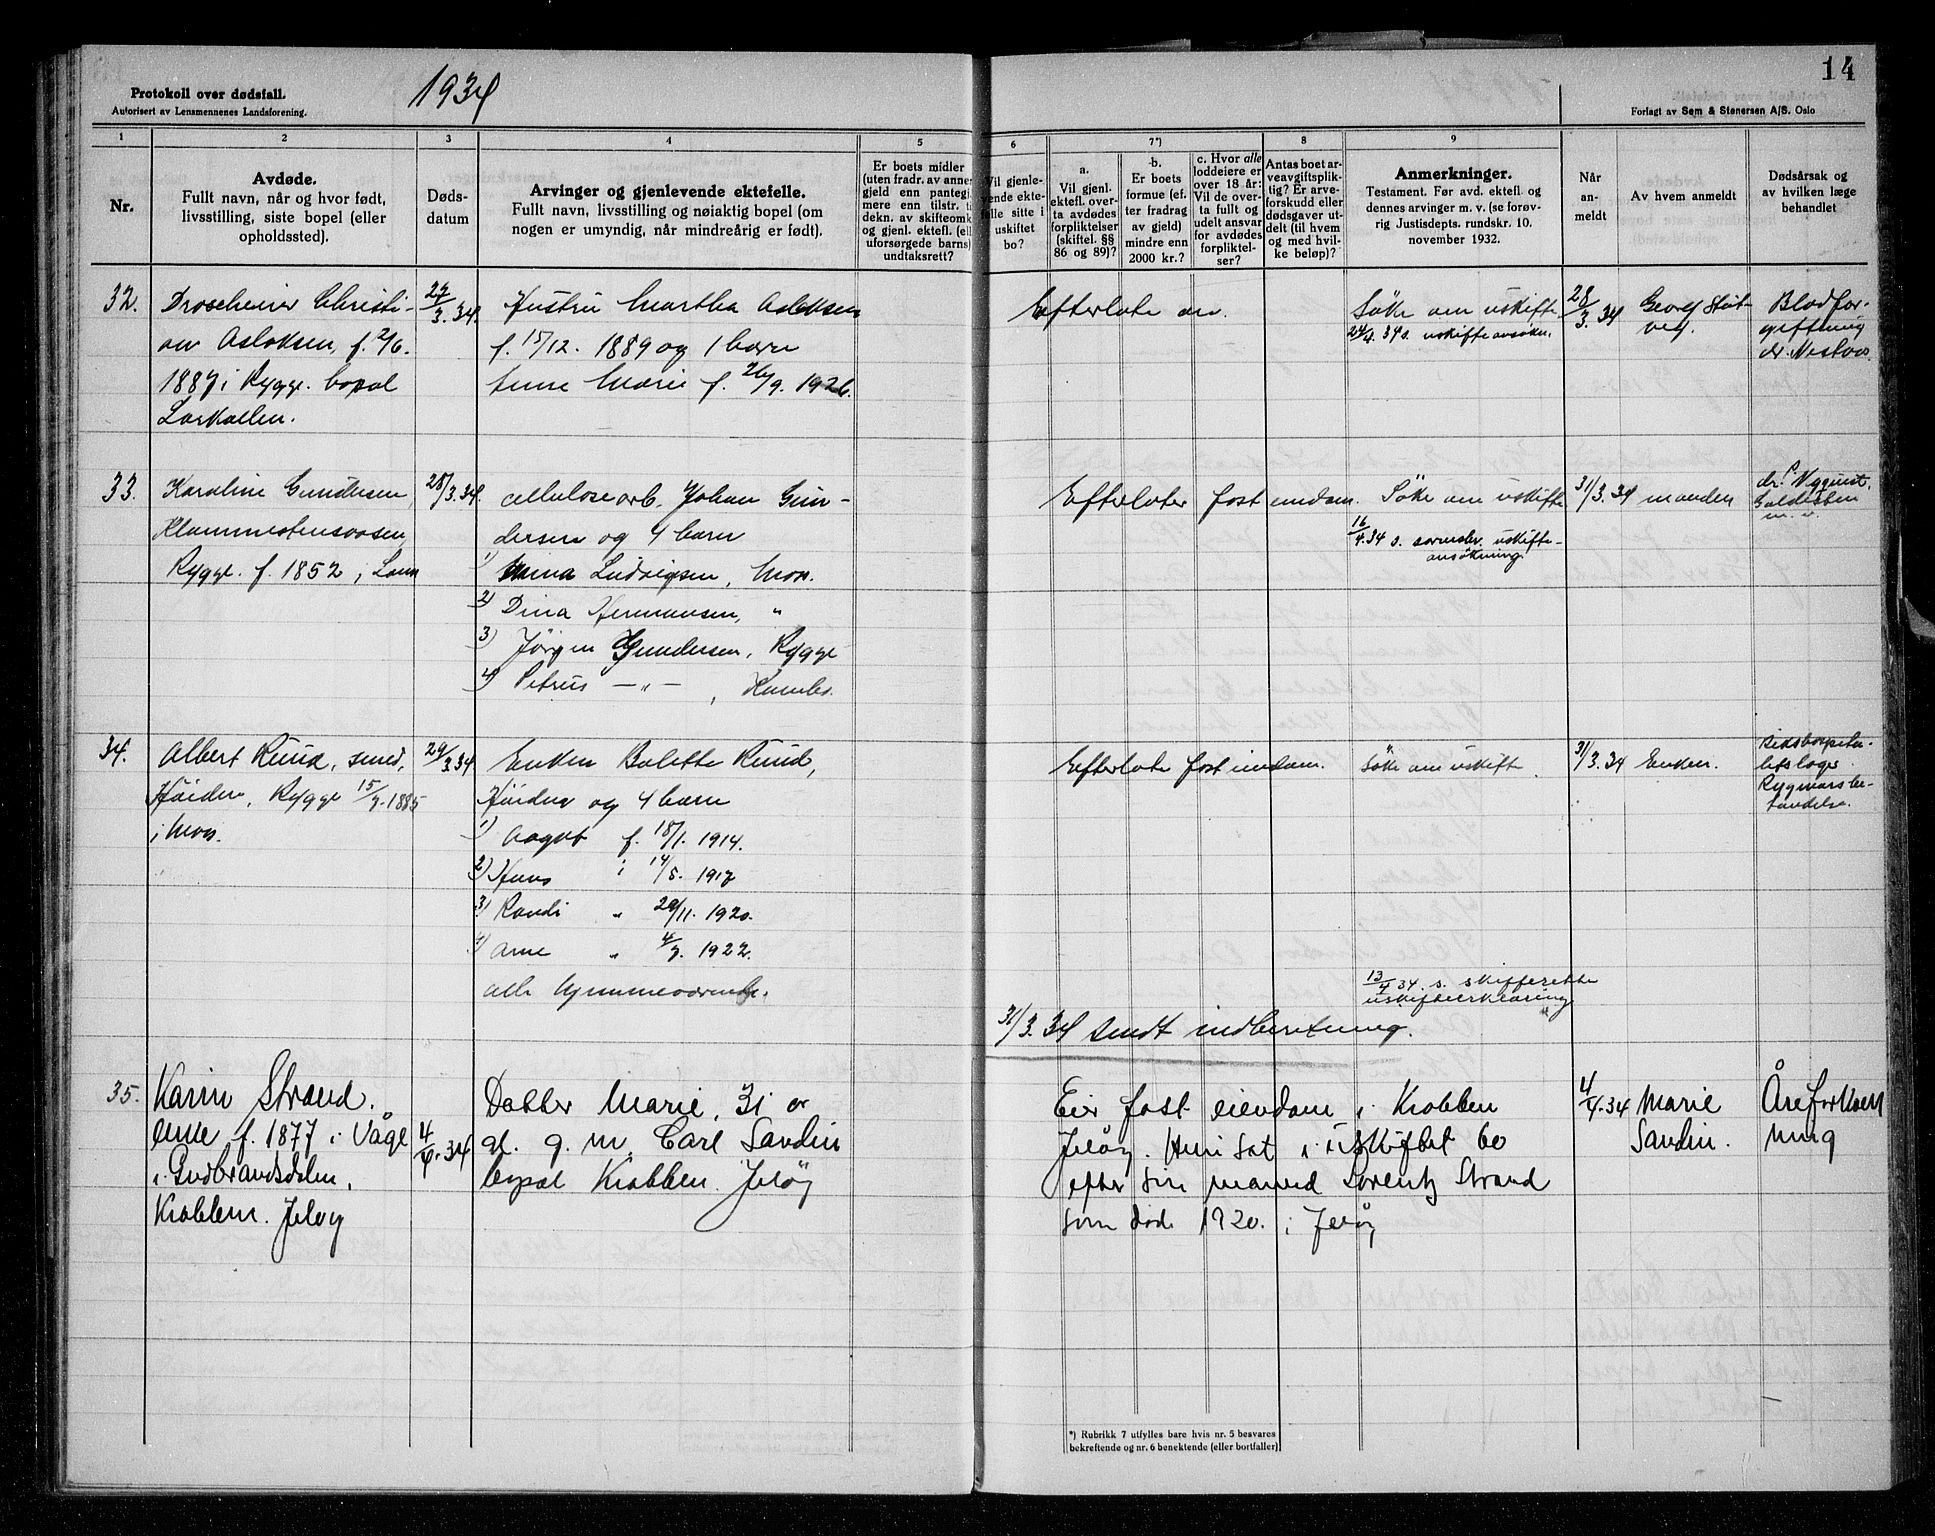 Protokoll over dødsfall.
Autorisert av Lensmennenes Landsforening.
1934
14
Forlagt av Sem & Stenersen A/S. Oslo
1 2 3 4 5 6 7*) 8 9
Nr.
Avdøde.
Fullt navn, når og hvor født,
livsstilling, siste bopel (eller
opholdssted).
Døds-
datum
Arvinger og gjenlevende ektefelle.
Fullt navn, livsstilling og nøiaktig bopel (om
nogen er umyndig, når mindreårig er født).
Er boets midler
(uten fradr. av annen
gjeld enn pantegj
mere enn tilstr. t
dekn. av skifteomk
og gjenl. ektef. (el
uforsørgede barns)
undtaksrett?
Vil gjenle-
vende ekte-
felle sitte i
uskiftet
bo?
a.
Vil gjenl.
ektefl. over-
ta avdødes
forpliktelser
(skiftel. §§
86 og 89)?
b.
Er boets
formue (ef-
ter fradrag
av gjeld)
mindre enn
2000 kr.?
c. Hvor alle
loddeiere er
over 18 år:
Vil de over-
ta fullt og
udelt ansvar
for avdødes
forpliktel-
ser?
Antas boet ar-
veavgiftsplik-
tig? Er arve-
forskudd eller
dødsgaver ut-
delt (til hvem
og med hvil-
ke beløp)?
Anmerkninger.
Testament. Før avd. ektefl. og
dennes arvinger m. v. (se forøv-
rig Justisdepts. rundskr. 10.
november 1932.
Når
an-
meldt
Av hvem anmeldt
Dødsårsak og
av hvilken læge
behandlet
32.
Droscheier Christi-
an Aslaksen, f. 2/6.
1887 i Rygge. bopal
Larkollen.
27/3.34.
Hustru Martha Aslaksen
f. 15/12. 1889 og 1 barn
Anne Marie f. 26/9. 1926.
Efterlater
Søke om uskifte
24/4. 34 s. uskifteansøkn.
28/3. 34
Georg
Blodfor-
giftning
dr.
33.
Karoline Gundersen,
Rygge. f. 1852,
28/3.34.
cellulosearb. Johan Gun-
dersen og 4 barn
1) Mina Ludvigsen, Moss.
2) Dina Hermansen, "
3) Jörgen Gundersen, Rygge
4) Petrus —"—, Kambo.
Efterlater fast eiendom.
Søke om uskifte
16/4.34 s. uskifte-
ansøkning.
31/3.34
manden
dr. Nyquist.
m. v.
34.
Albert Ruud, smed,
Höiden, Rygge 15/7.1885
i Moss.
29/3.34
Enken Bolette Ruud,
Höiden og 4 barn
1) Aagot f. 18/1. 1914.
2) Hans " 14/5. 1917
3) Randi " 29/11. 1920.
4) Arne " 4/7. 1922.
alle hjemmeværende.
Efterlater fast eiendom.
Søke om uskifte
13/4 34. s. skifteretten
uskifteerklæring
31/3.34
Enken.
31/3. 34 sendt indberetning.
35.
Karin Strand.
enke f. 1877 i Vågå
i Gudbrandsdalen,
Krabben. Jeløy
4/4.34
Datter Marie, 31 år
gl. g. m. Carl Sandin
bopal Krabben. Jeløy
Eier fast eiendom i Krabben
Jeløy. Hun sat i uskiftet bo
efter sin mand Lorentz Strand
som døde 1920. i Jeløy
4/4.34
Marie
Sandin.
Åreforkalk
ning
*) Rubrikk 7 utfylles bare hvis nr. 5 besvares
bekreftende og nr. 6 benektende (eller bortfaller)